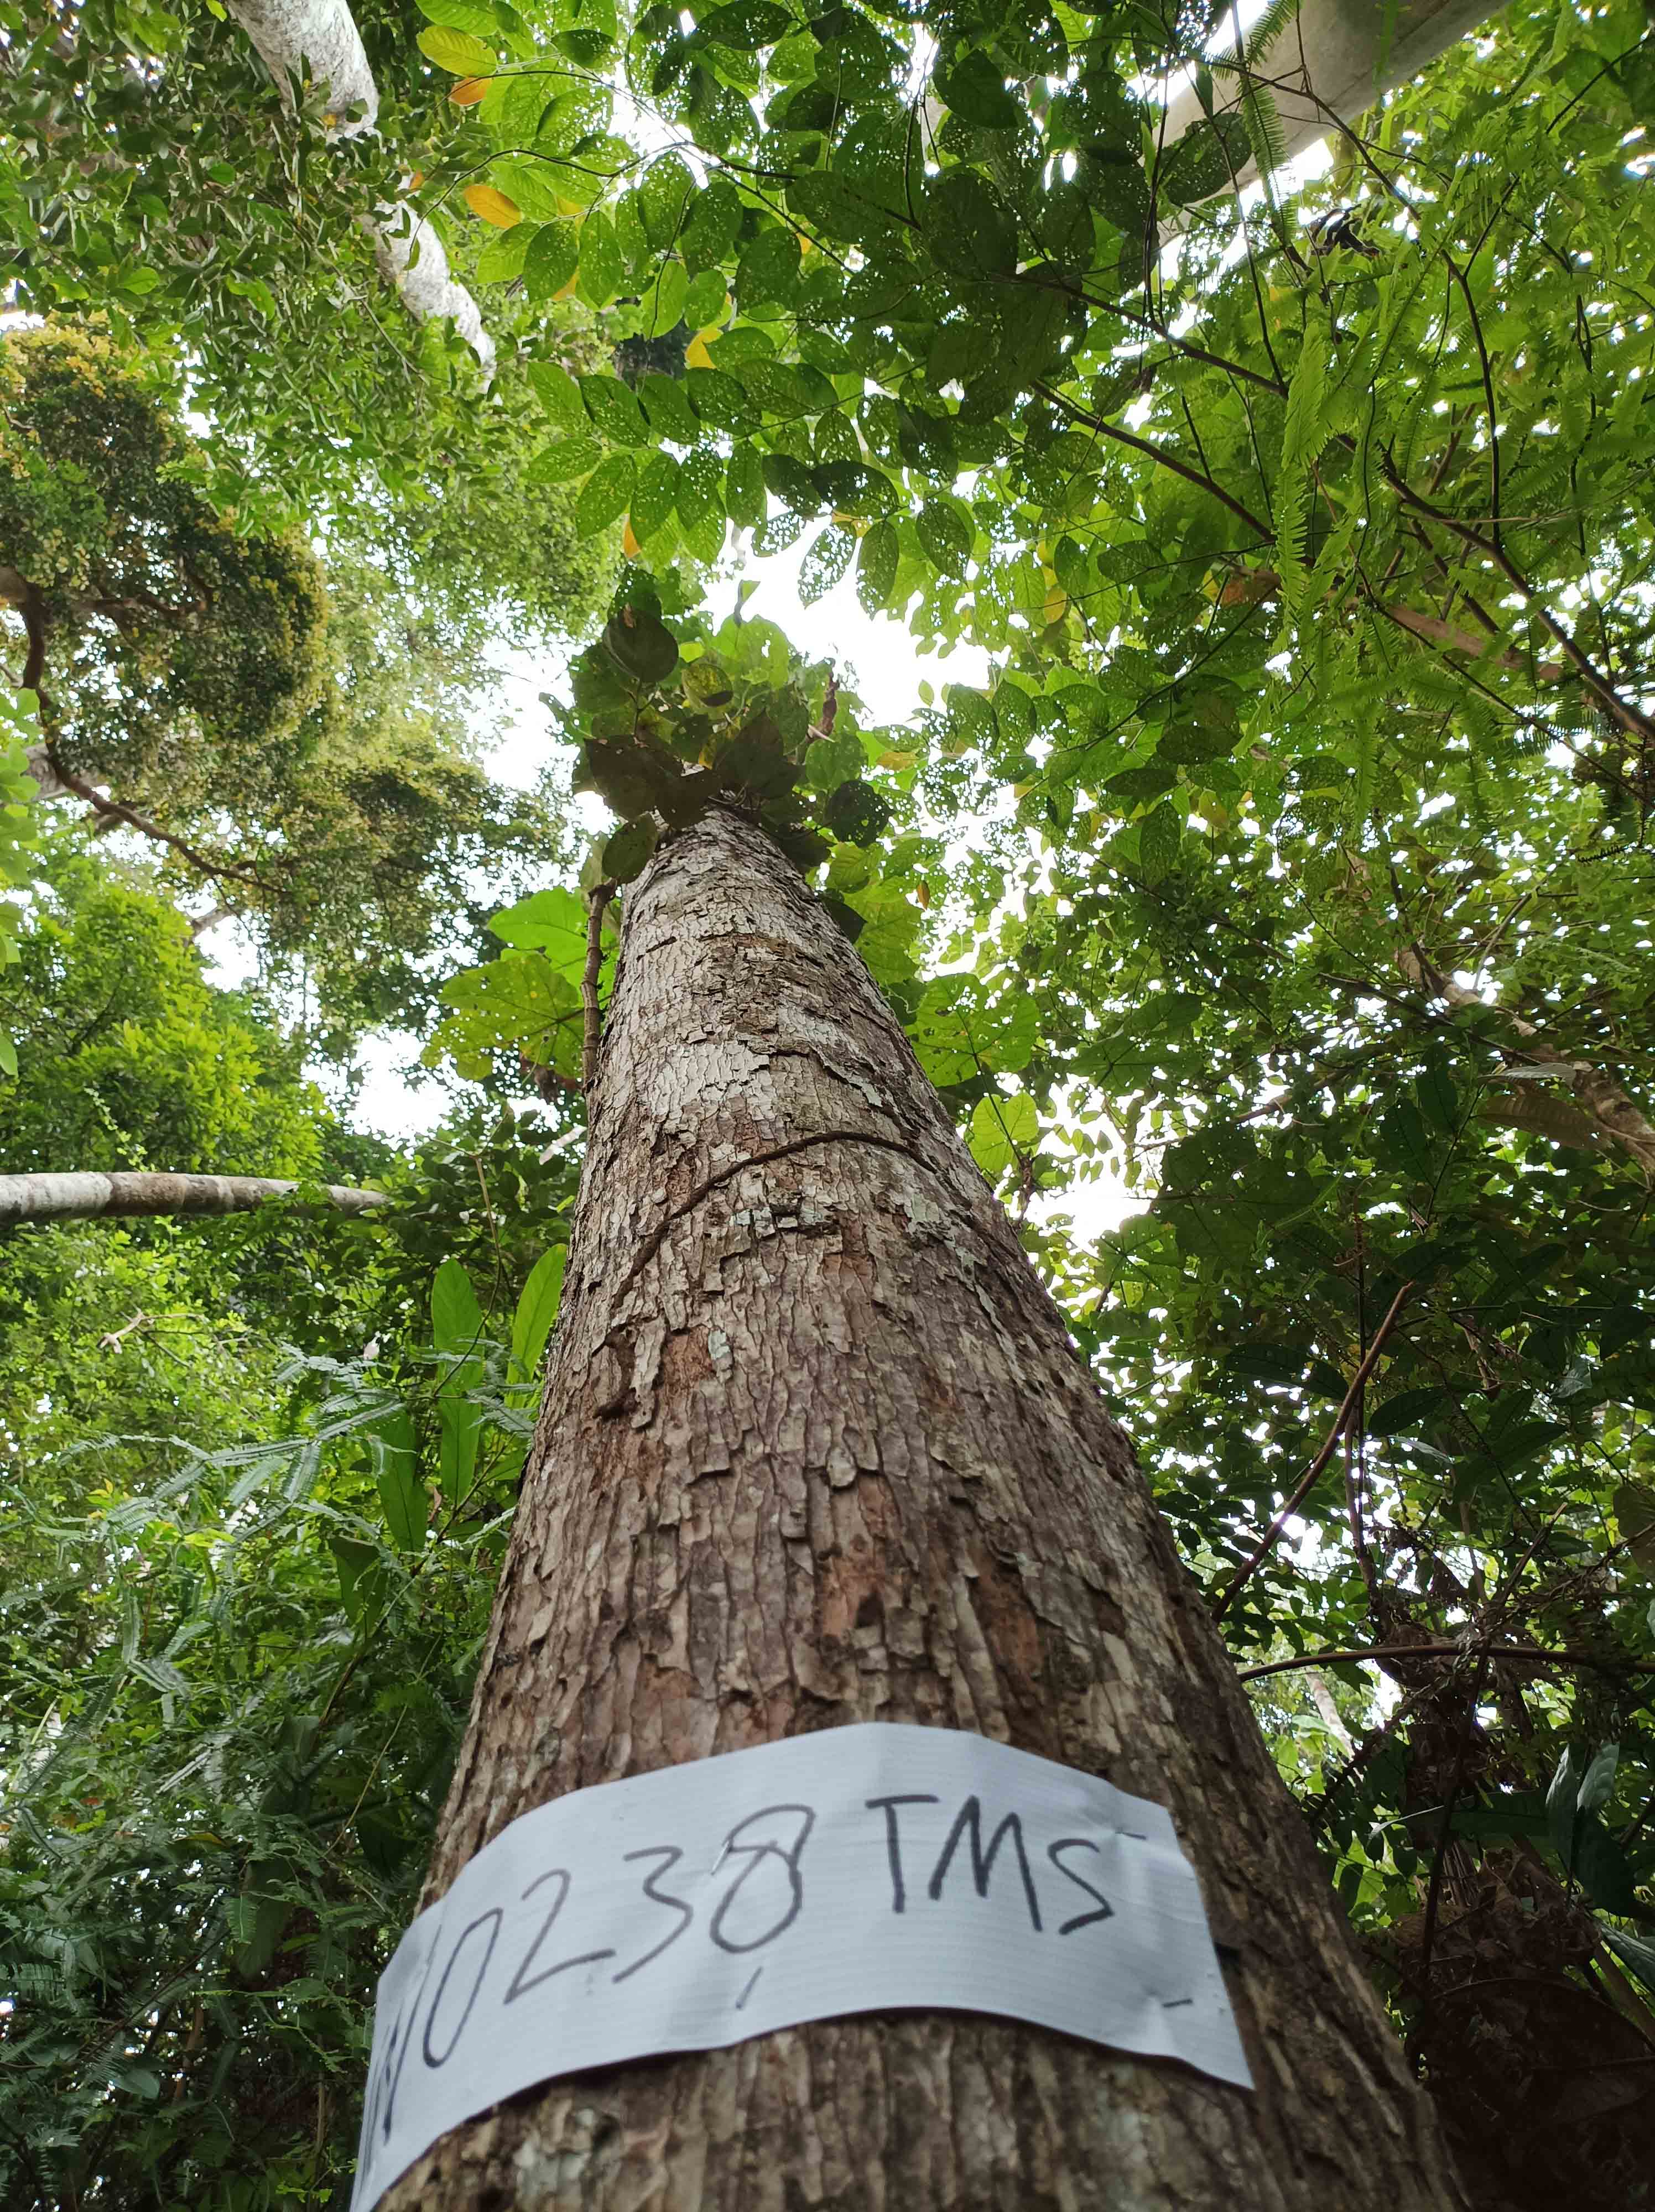 0238 TMS